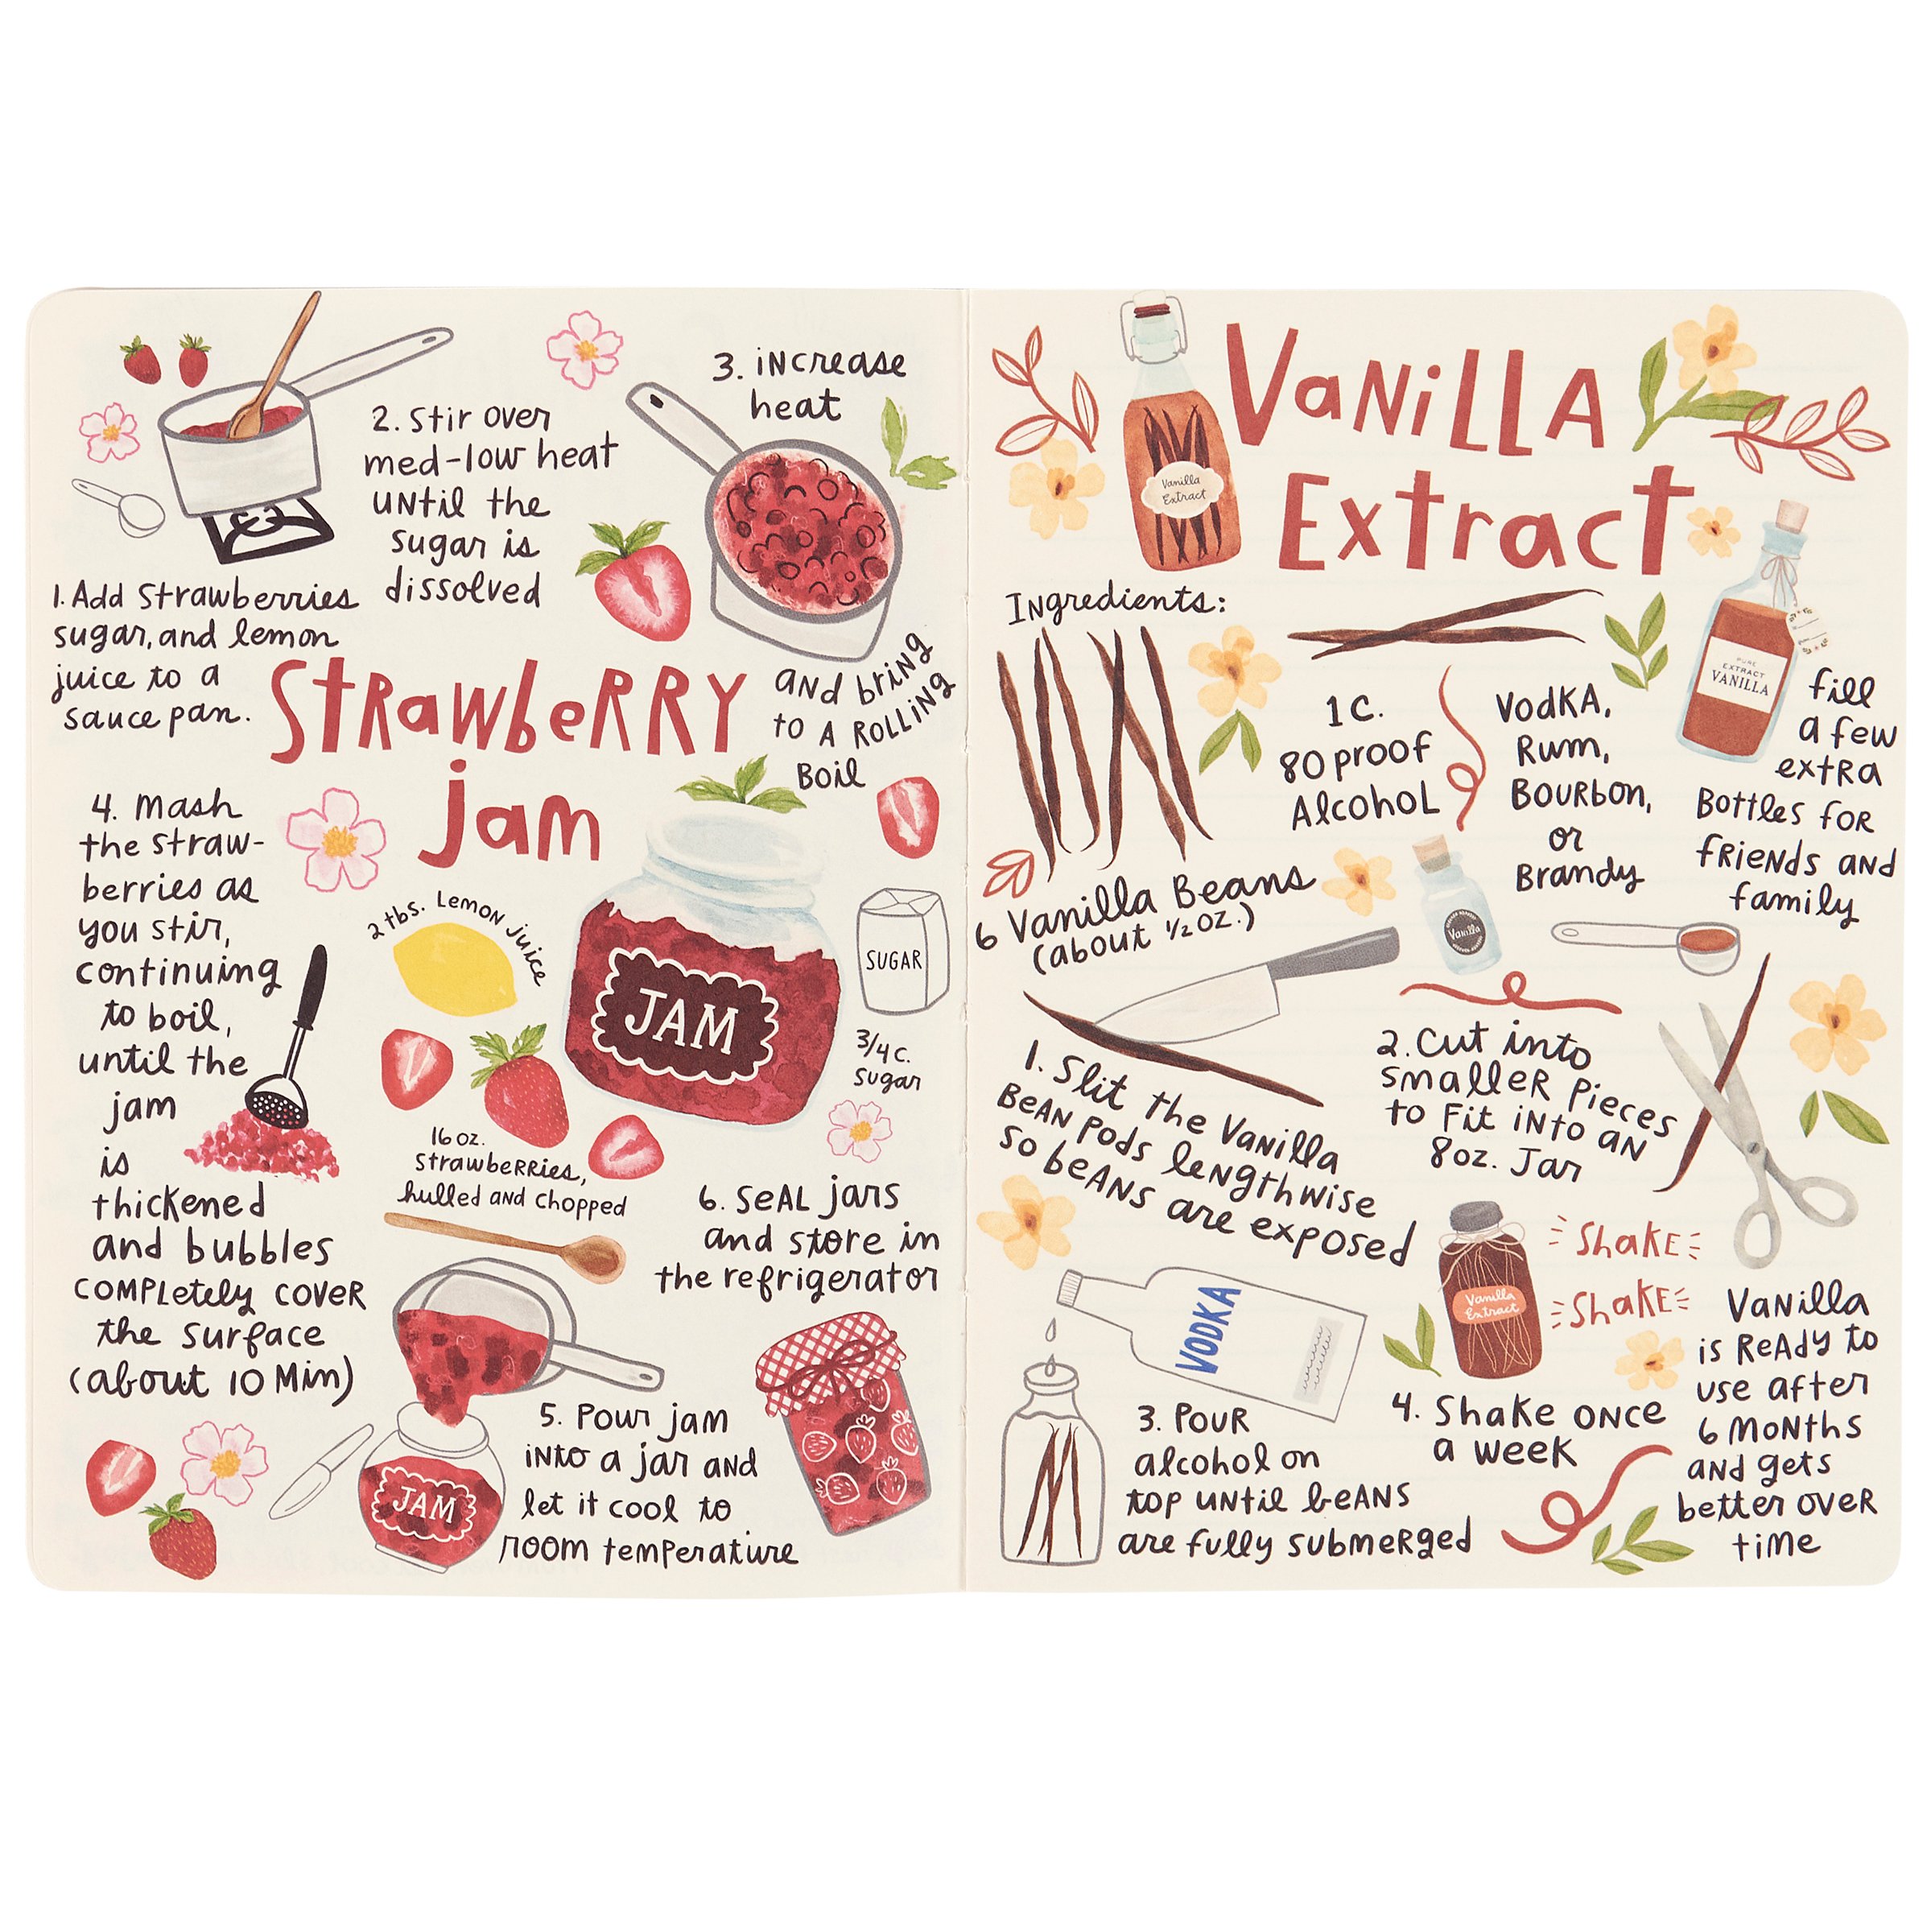 Strawberry
jam
1. Add Strawberries
sugar, and lemon
juice to a
sauce pan.
2. Stir over
med-low heat
until the
sugar is
dissolved
3. increase
heat
and bring
to a rolling
Boil
4. Mash
the straw-
berries as
you stir,
continuing
to boil,
until the
jam
is
thickened
and bubbles
completely cover
the surface
(about 10 Min)
2 tbs. Lemon juice
JAM
SUGAR
3/4 c.
sugar
16 oz.
strawberries,
hulled and chopped
5. Pour jam
into a jar and
let it cool to
room temperature
JAM
6. Seal jars
and store in
the refrigerator
Vanilla
Extract
Vanilla
Extract
Ingredients:
6 Vanilla Beans
(about 1/2 oz.)
1 c.
80 proof
Alcohol
Vodka,
Rum,
Bourbon,
or
Brandy
PURE
EXTRACT
VANILLA
fill
a few
extra
Bottles for
friends and
family
Vanilla
1. Slit the Vanilla
Bean pods lengthwise
so beans are exposed
2. Cut into
smaller pieces
to fit into an
8 oz. Jar
VODKA
3. Pour
alcohol on
top until beans
are fully submerged
Vanilla
Extract
Shake
Shake
4. Shake once
a week
Vanilla
is ready to
use after
6 months
and gets
better over
time